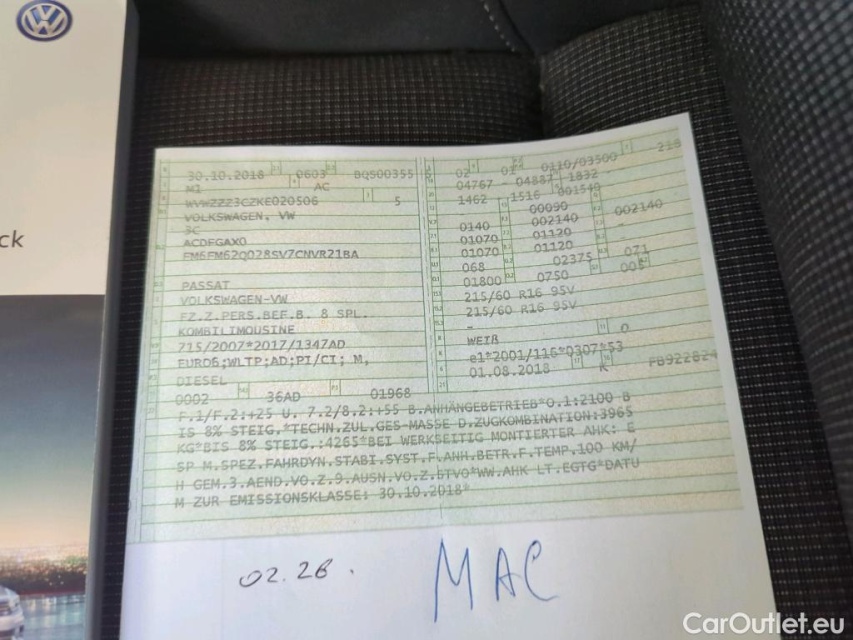 VW
ck
30.10.2018 0603 BQ500355 5
M1 AC
WVWZZZ3CZKE020506 5
VOLKSWAGEN, VW
3C
ACDFGAX0
FM6FM62Q028SV7CNVR21BA
PASSAT
VOLKSWAGEN-VW
FZ.Z.PERS.BEF.B. 8 SPL.
KOMBILIMOUSINE
715/2007*2017/1347AD
EURO6;WLTP;AD;PI/CI; M,
DIESEL
0002 36AD 01968
02 01 0110/03500 218
04767 - 04887 1832
1462 1516 001540
00090
0140 002140 002140
01070 01120 -
01070 01120
068 02375 071
01800 0750 005
215/60 R16 95V
215/60 R16 95V
-
WEIß 0
e1*2001/116*0307*53
01.08.2018 K FB922824
F.1/F.2:+25 U. 7.2/8.2:+55 B.ANHÄNGEBETRIEB*O.1:2100 B
IS 8% STEIG.*TECHN.ZUL.GES-MASSE D.ZUGKOMBINATION:3965
KG*BIS 8% STEIG.:4265*BEI WERKSEITIG MONTIERTER AHK: E
SP M.SPEZ.FAHRDYN.STABI.SYST.F.ANH.BETR.F.TEMP.100 KM/
H GEM.3.AEND.VO.Z.9.AUSN.VO.Z.STVO*WW.AHK LT.EGTG*DATU
M ZUR EMISSIONSKLASSE: 30.10.2018*
02.26.
MAC
CarOutlet.eu